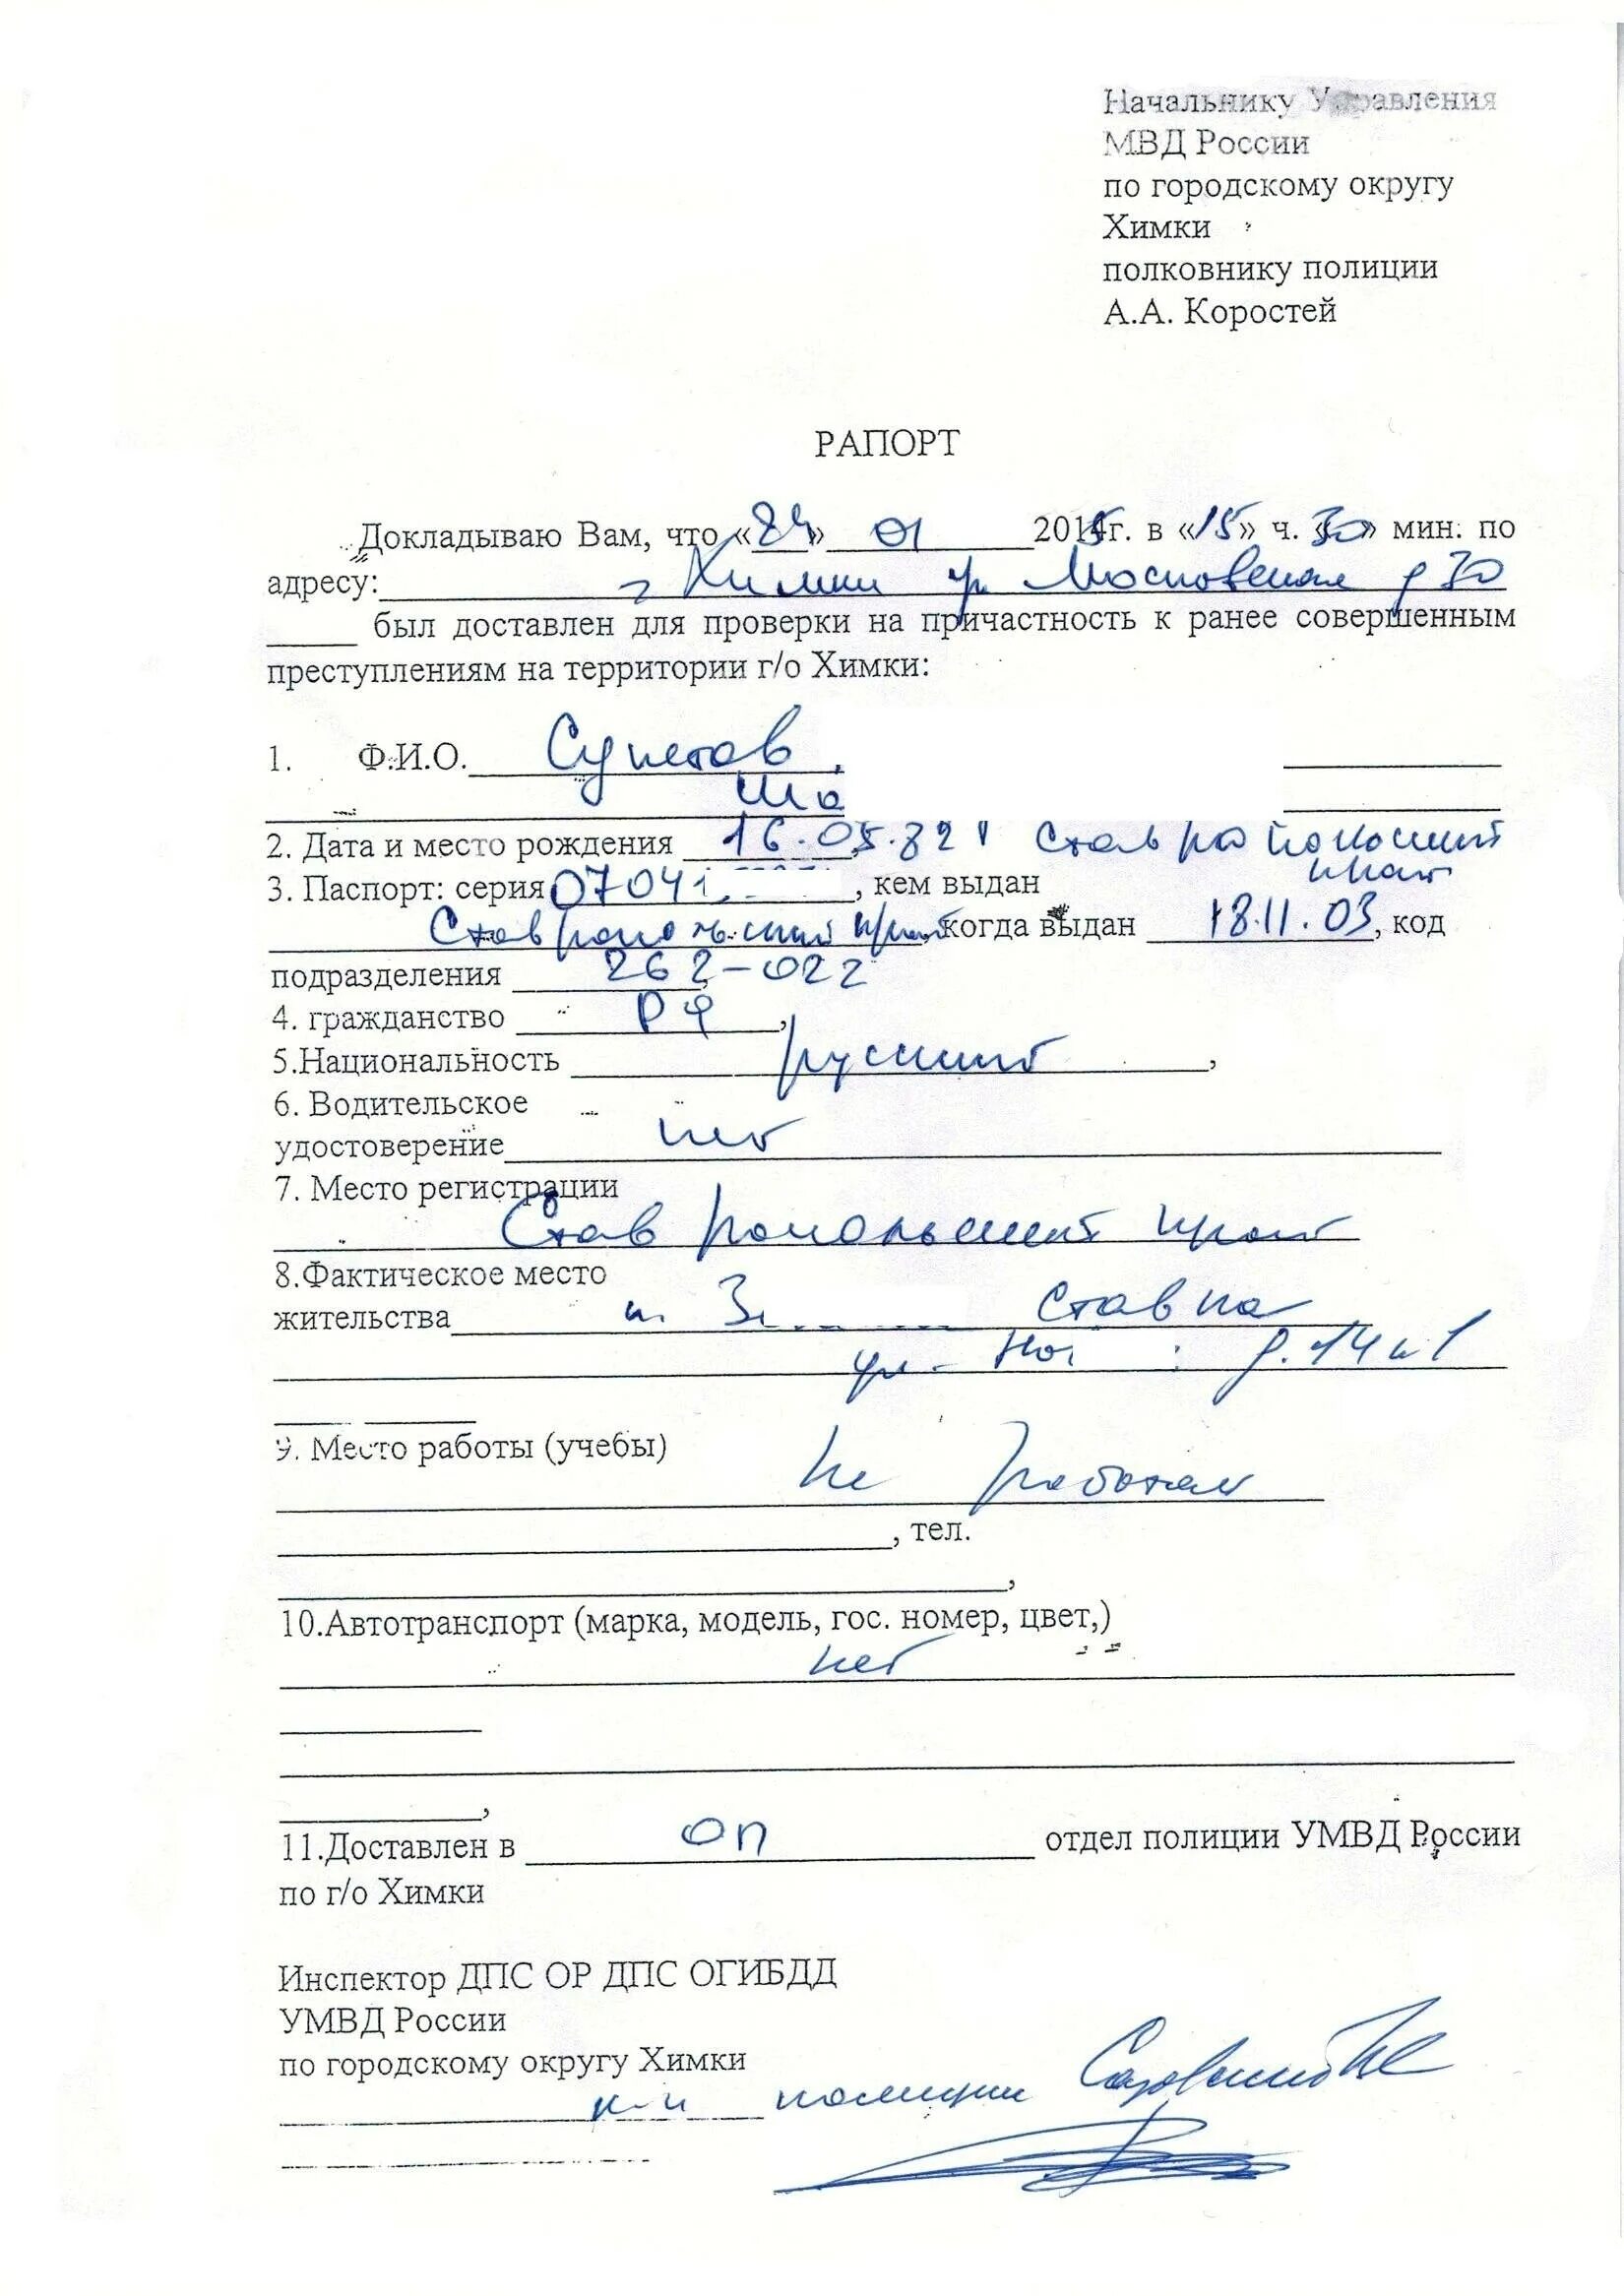 Начальнику Управления
МВД России
по городскому округу
Химки
полковнику полиции
А.А. Коростей
РАПОРТ
Докладываю Вам, что «24» 01 2015г. в «15» ч. «30» мин. по
адресу: г Химки ул Московская д 30
был доставлен для проверки на причастность к ранее совершенным
преступлениям на территории г/о Химки:
1. Ф.И.О. Супетов
Ша
2. Дата и место рождения 16.05.82 г Ставропольский
край
3. Паспорт: серия 07041, кем выдан
Ставропольский край, когда выдан 18.11.03, код
подразделения 262-022
4. гражданство РФ,
5.Национальность русский,
6. Водительское
удостоверение нет
7. Место регистрации
Ставропольский край
8.Фактическое место
жительства Ставка
ул. д. 14 к 1
9. Место работы (учебы)
не работает
, тел.
,
10.Автотранспорт (марка, модель, гос. номер, цвет,)
нет
,
11.Доставлен в ОП отдел полиции УМВД России
по г/о Химки
Инспектор ДПС ОР ДПС ОГИБДД
УМВД России
по городскому округу Химки
к-н полиции